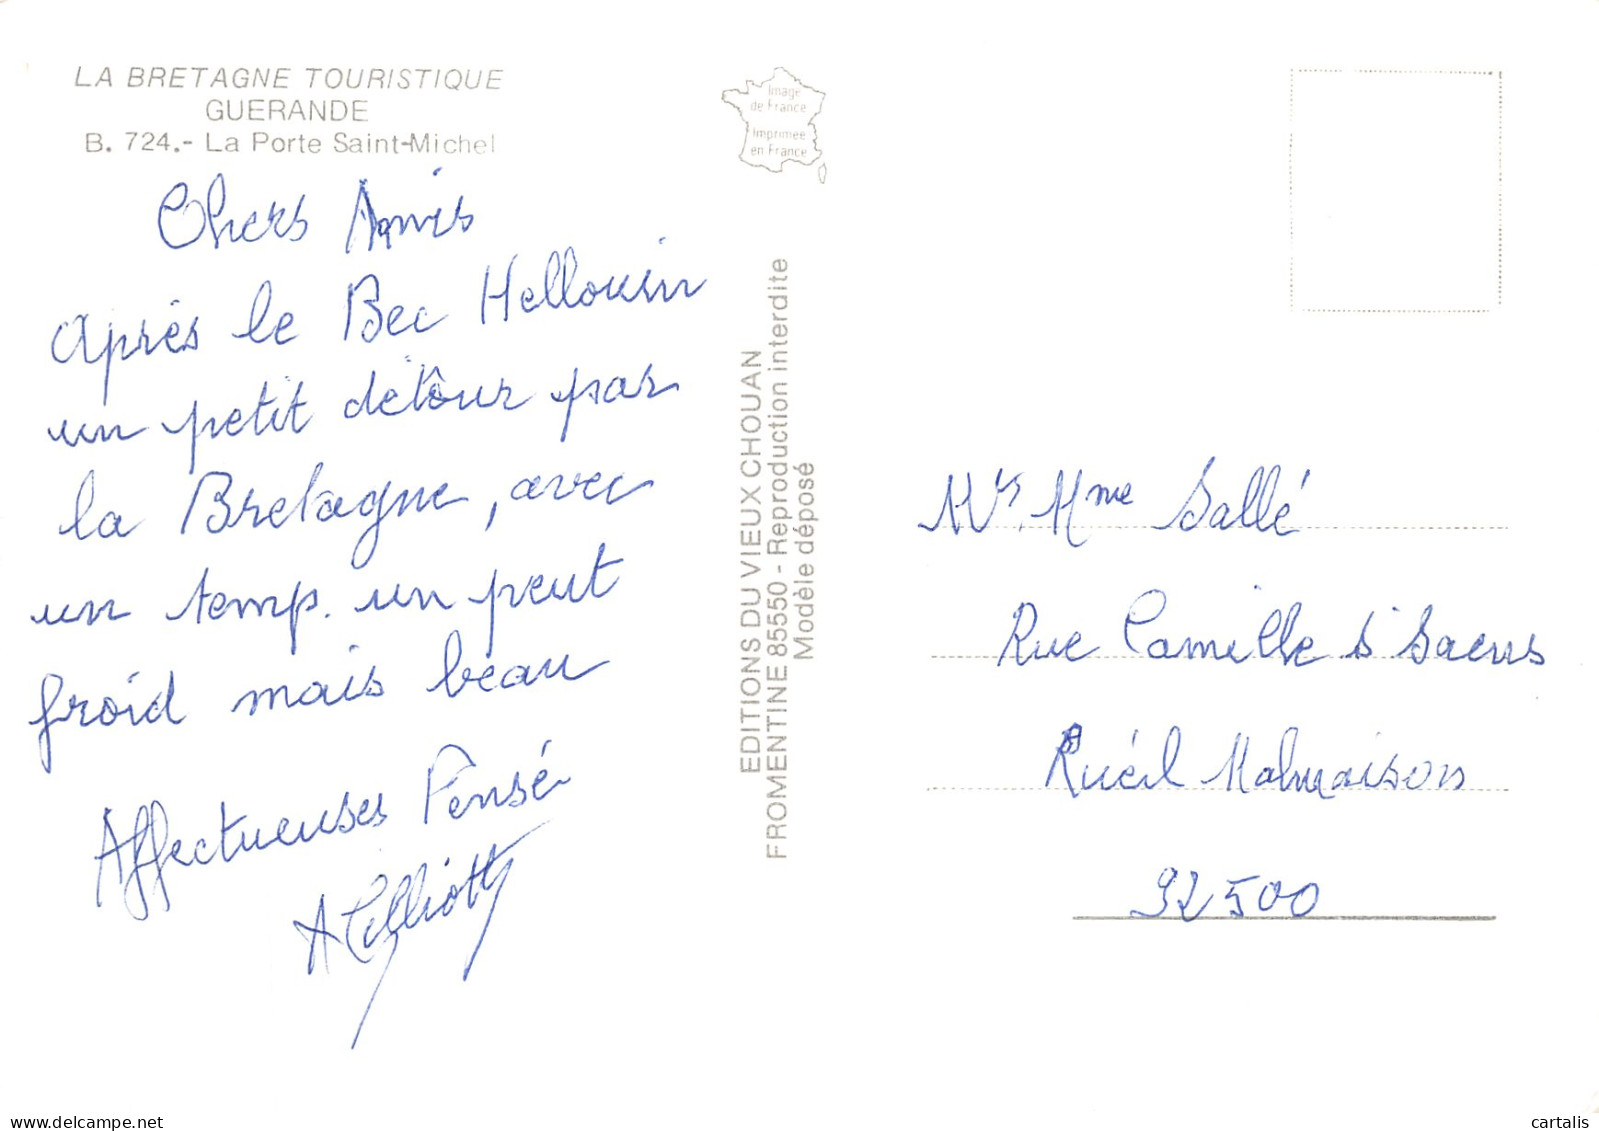 LA BRETAGNE TOURISTIQUE
GUERANDE
B. 724.- La Porte Saint-Michel
Chers Amis
après le Bec Hellouin
un petit détour par
la Bretagne, avec
un temp. un peut
froid mais beau
Affectueuses Pensé
Image
de France
Imprimée
en France
EDITIONS DU VIEUX CHOUAN
FROMENTINE 85550 - Reproduction interdite
Modèle déposé
Mrs. Mme Sallé
Rue Camille St Saens
Ruéil Malmaison
92500
delcampe.net
cartalis